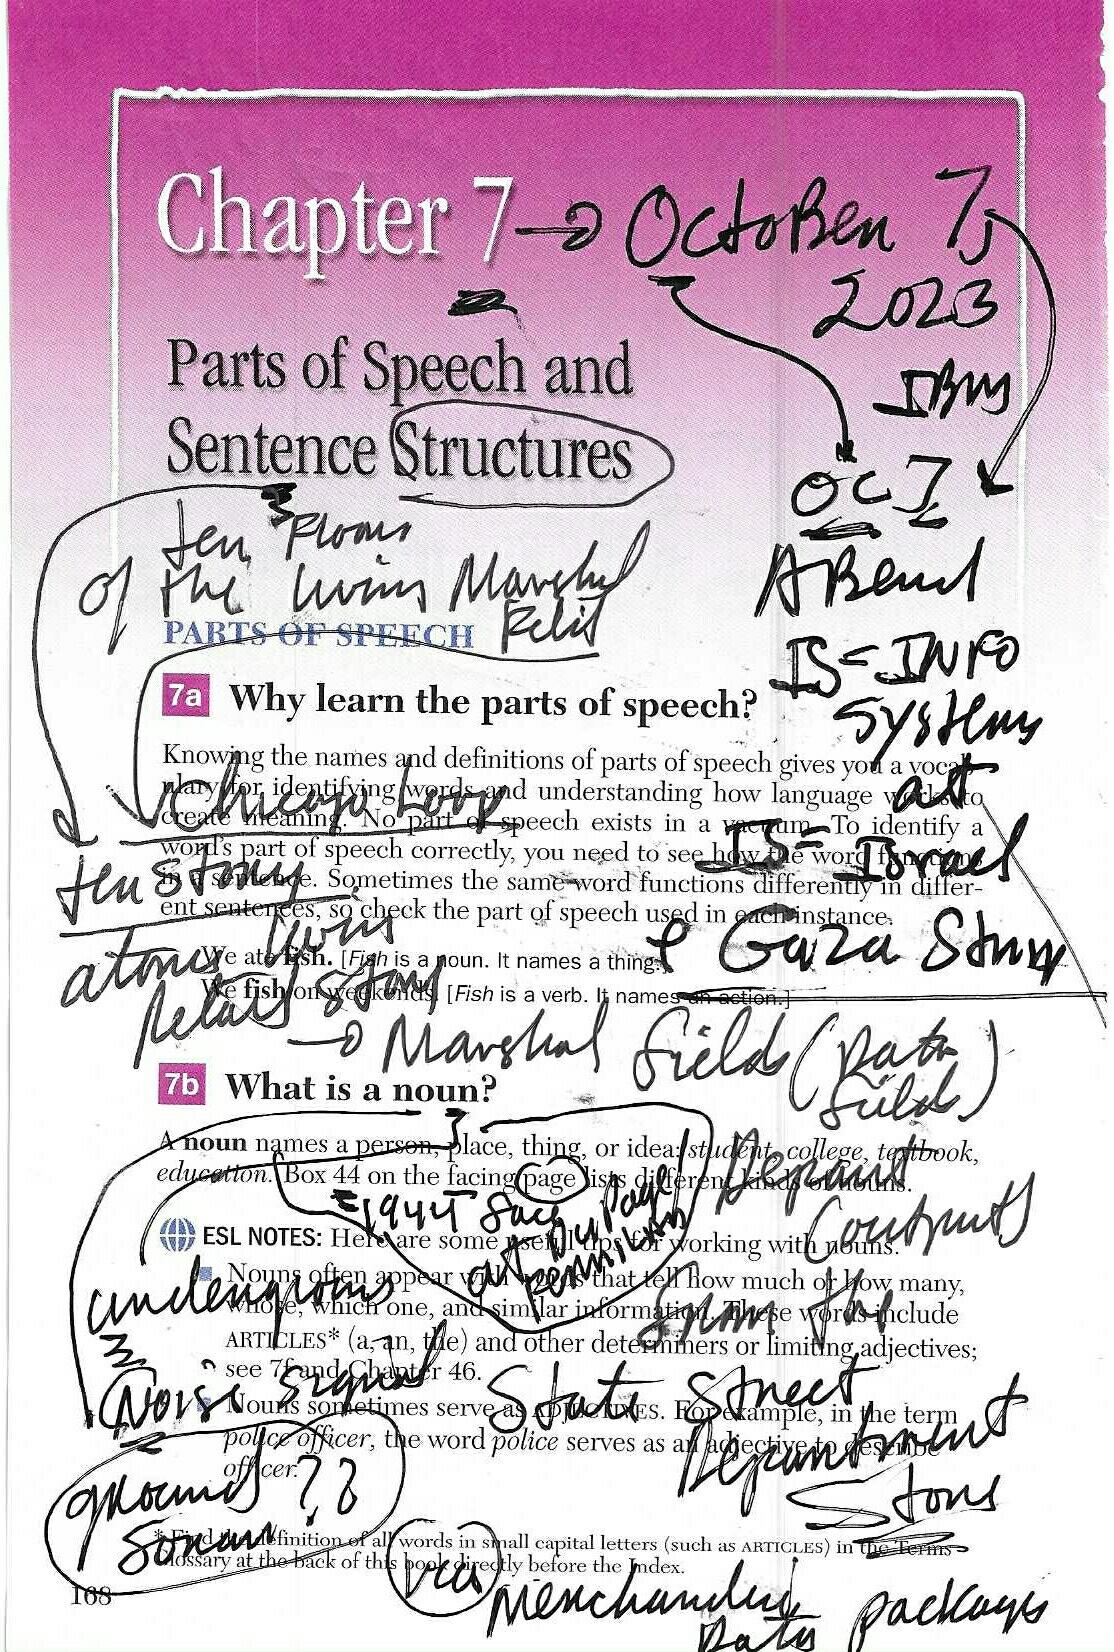 Chapter 7 → OctoBer 7,
2023
IBM
Parts of Speech and
Sentence Structures
OC 7
ten Floors
of the twins Marshal
Field
PARTS OF SPEECH
IS = INFO
Systems
7a Why learn the parts of speech?
Knowing the names and definitions of parts of speech gives you a vocab-
ulary for identifying words and understanding how language works to
create meaning. No part of speech exists in a vacuum. To identify a
word's part of speech correctly, you need to see how the word functions
in a sentence. Sometimes the same word functions differently in differ-
ent sentences, so check the part of speech used in each instance.
at
Chicago Loop
IS = Israel
ten story
& Gaza Strip
atoms twins
story
We ate fish. [Fish is a noun. It names a thing.]
We fish on weekends. [Fish is a verb. It names an action.]
→ Marshal fields (Data
fields)
7b What is a noun?
A noun names a person, place, thing, or idea: student, college, textbook,
education. Box 44 on the facing page lists different kinds of nouns.
= 1944
at
page
ESL NOTES: Here are some useful tips for working with nouns.
Nouns often appear with words that tell how much or how many,
whose, which one, and similar information. These words include
ARTICLES* (a, an, the) and other determiners or limiting adjectives;
see 7f and Chapter 46.
Nouns sometimes serve as ADJECTIVES. For example, in the term
police officer, the word police serves as an adjective to describe
officer.
from the
Noise signal
State Street
Department
Store
ground ??
Sonar
* Find the definition of all words in small capital letters (such as ARTICLES) in the Terms
Glossary at the back of this book directly before the Index.
168
via
Data packages